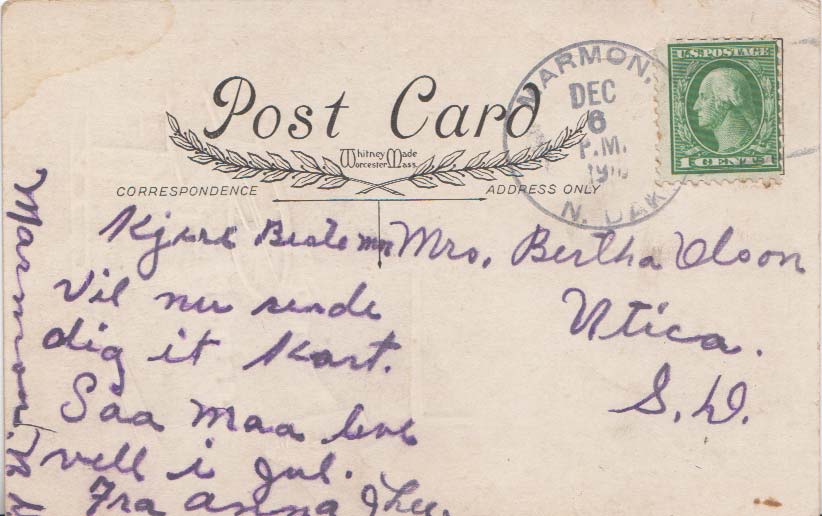 Post Card
Whitney Made
Worcester Mass.
CORRESPONDENCE
ADDRESS ONLY
MARMON,
DEC
6
P.M.
191
N. DAK
U.S. POSTAGE
1 CENTS 1
Kjere Beste mr
Vil nu sende
dig it Kart.
Saa maa leve
vell i Jul.
Fra Anna
Marmon, N.
Mrs. Bertha Olson
Utica.
S. D.